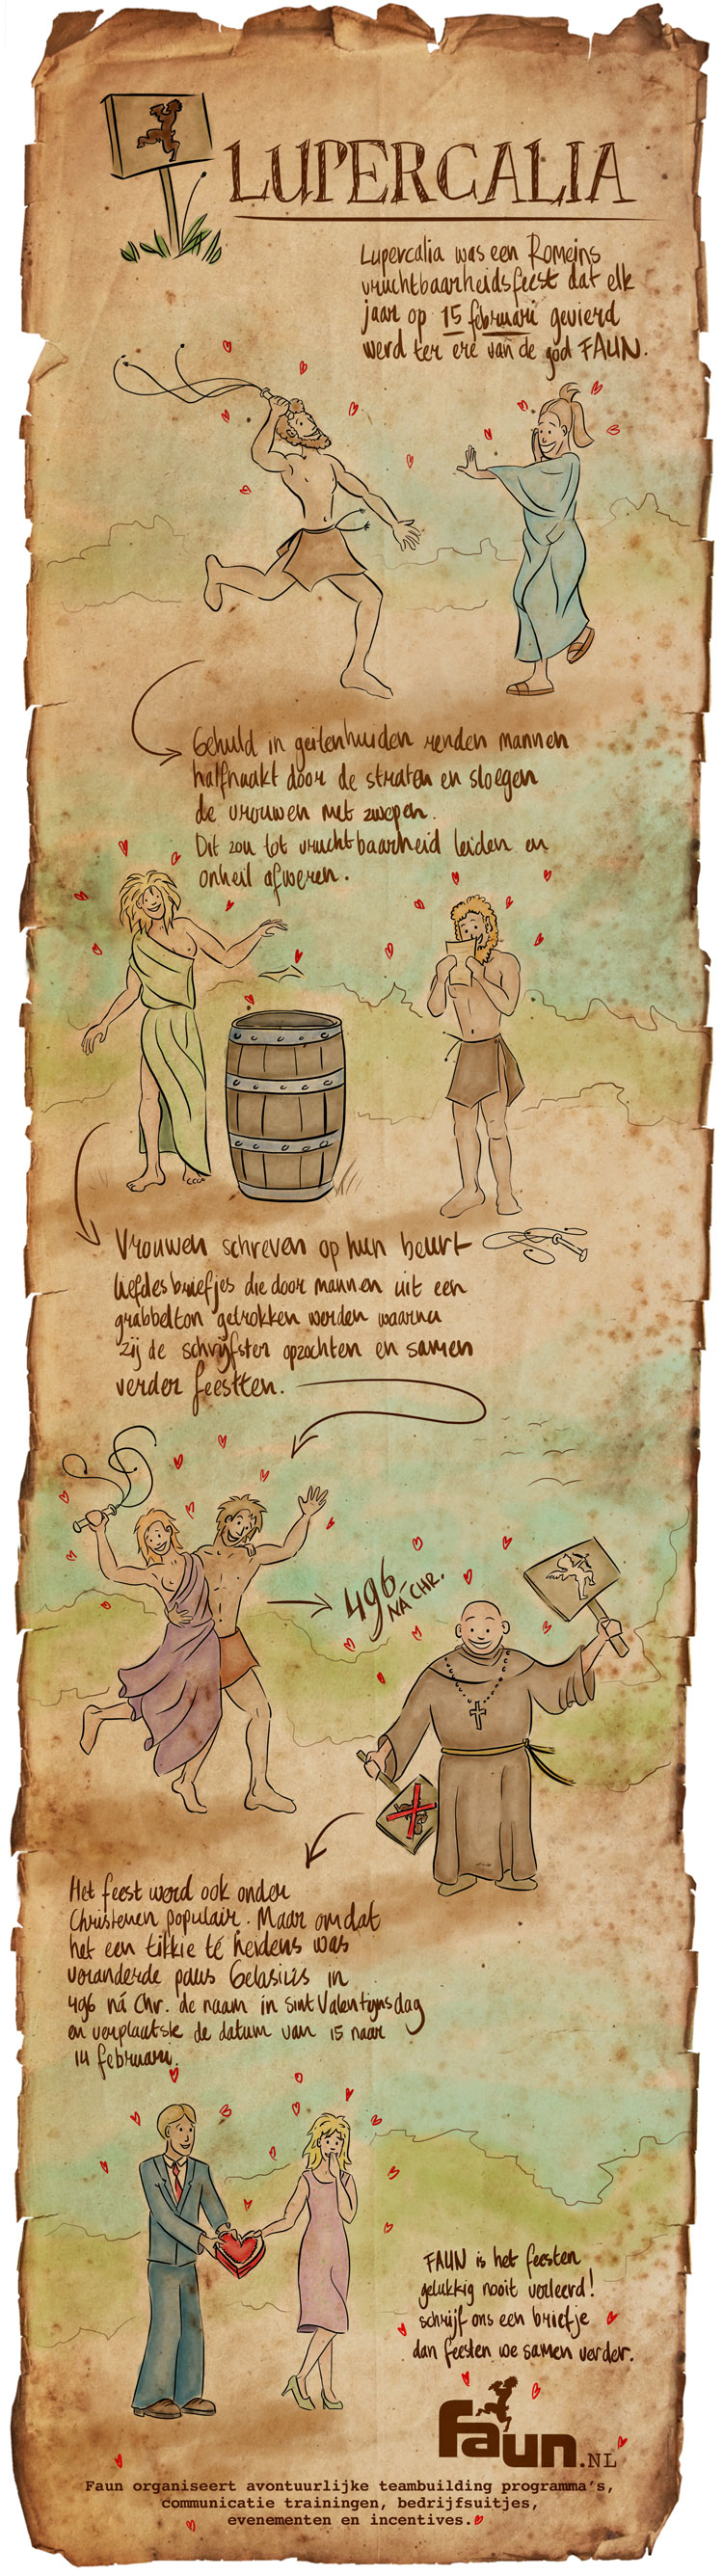 LUPERCALIA
Lupercalia was een Romeins
vruchtbaarheidsfeest dat elk
jaar op 15 februari gevierd
werd ter ere van de god FAUN.
Gehuld in geitenhuiden renden mannen
halfnaakt door de straten en sloegen
de vrouwen met zwepen.
Dit zou tot vruchtbaarheid leiden en
onheil afweren.
Vrouwen schreven op hun beurt
liefdesbriefjes die door mannen uit een
grabbelton getrokken werden waarna
zij de schrijfster opzochten en samen
verder feestten.
496
NÁ CHR.
Het feest werd ook onder
Christenen populair. Maar omdat
het een tikkie té heidens was
veranderde paus Gelasius in
496 ná Chr. de naam in Sint Valentijnsdag
en verplaatste de datum van 15 naar
14 februari.
FAUN is het feesten
gelukkig nooit verleerd!
schrijf ons een briefje
dan feesten we samen verder.
faun.NL
Faun organiseert avontuurlijke teambuilding programma's,
communicatie trainingen, bedrijfsuitjes,
evenementen en incentives.